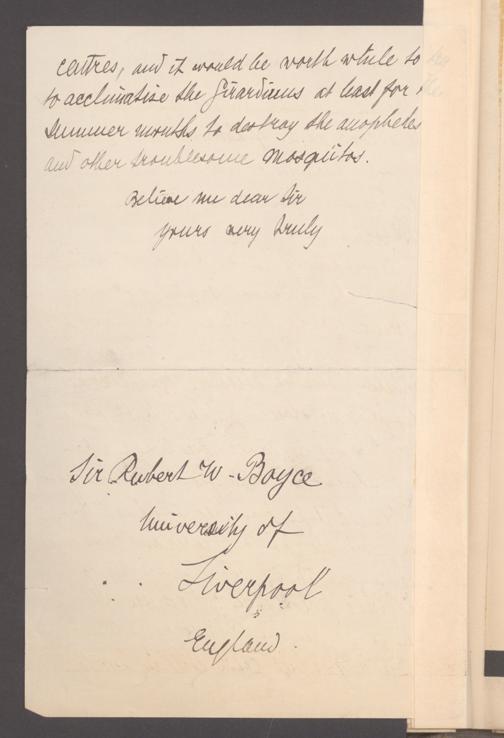 centres, and it would be worth while to try
to acclimatise the Girardinus at least for the
summer months to destroy the anopheles
and other troublesome mosquitos.
Believe me dear Sir
yours very truly
Sir Rubert W. Boyce
University of
Liverpool
England.